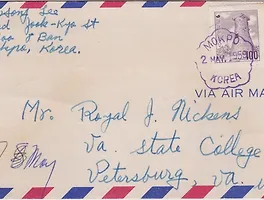 Lee
Jook-Kyo St
8 Ban
Korea.
MOKPO
2 MAY. 1959
KOREA
100
VIA AIR MA
Mr. Royal J. Nickens
Va. State College
Petersburg, Va.
8 May